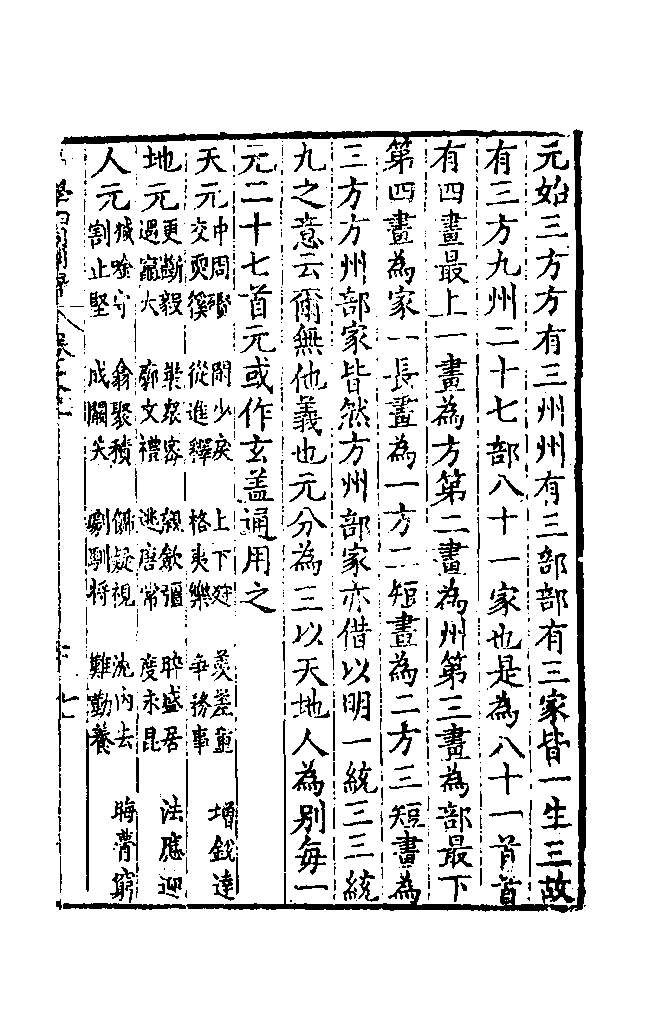 元始三方方有三州州有三部部有三家皆一生三故
有三方九州二十七部八十一家也是為八十一首首
有四畫最上一畫為方第二畫為州第三畫為部最下
第四畫為家一長畫為一方二短畫為二方三短畫為
三方方州部家皆然方州部家亦借以明一統三三統
九之意云爾無他義也元分為三以天地人為别每一
元二十七首元或作玄盖通用之
天元 中周礥 閑少戾 上干狩 羨差童 增銳達
交耎徯 從進釋 格夷樂 爭務事
地元 更斷毅 裝衆密 親斂彊 睟盛居 法應迎
遇竈大 廓文禮 逃唐常 度永昆
人元 減唫守 翕聚積 飾疑視 沈內去 晦瞢窮
割止堅 成闕失 劇馴將 難勤養